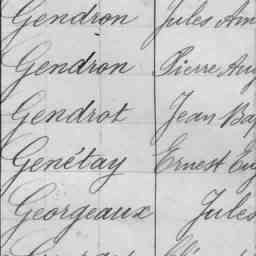 Gendron Jules Am
Gendron Pierre Aug
Gendrot Jean Bap
Genétay Ernest Eug
Georgeaux Jules